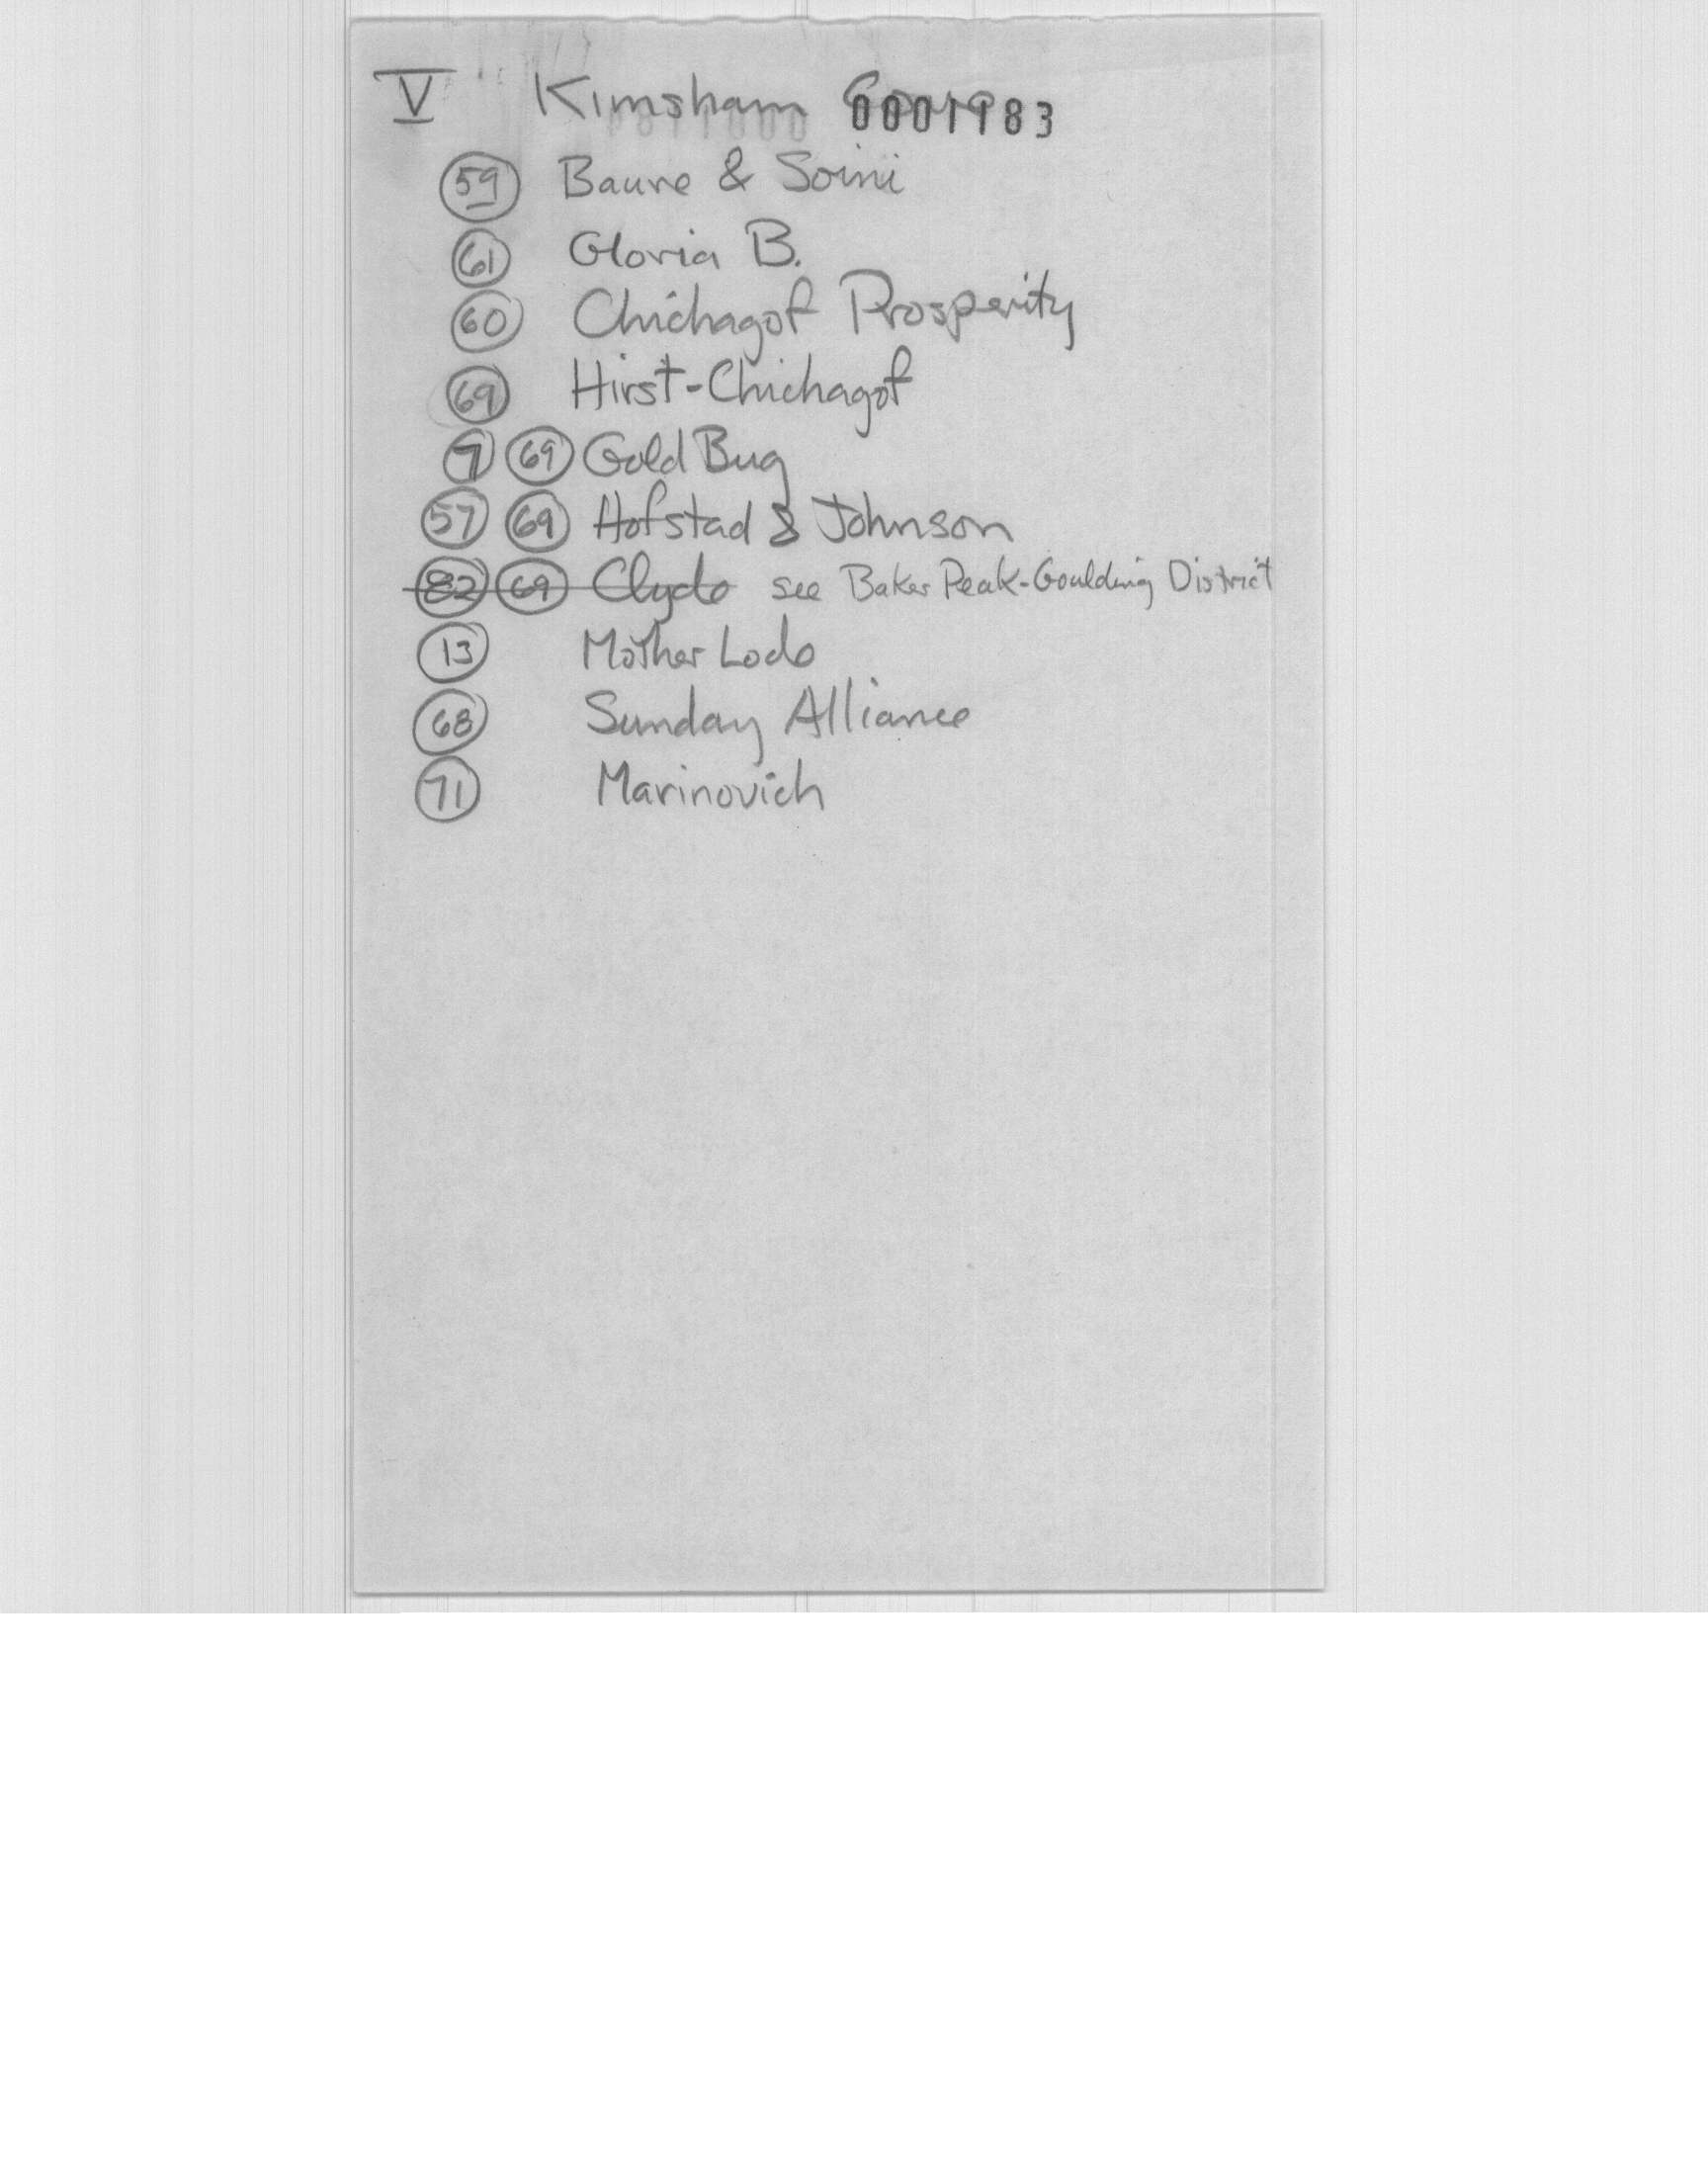 V Kimsham Cove 0001183
59 Baure & Soini
61 Gloria B.
60 Chichagof Prosperity
69 Hirst-Chichagof
7 69 Gold Bug
57 69 Hofstad & Johnson
82 69 Clyde see Baker Peak-Goulding District
13 Mother Lode
68 Sunday Alliance
71 Marinovich